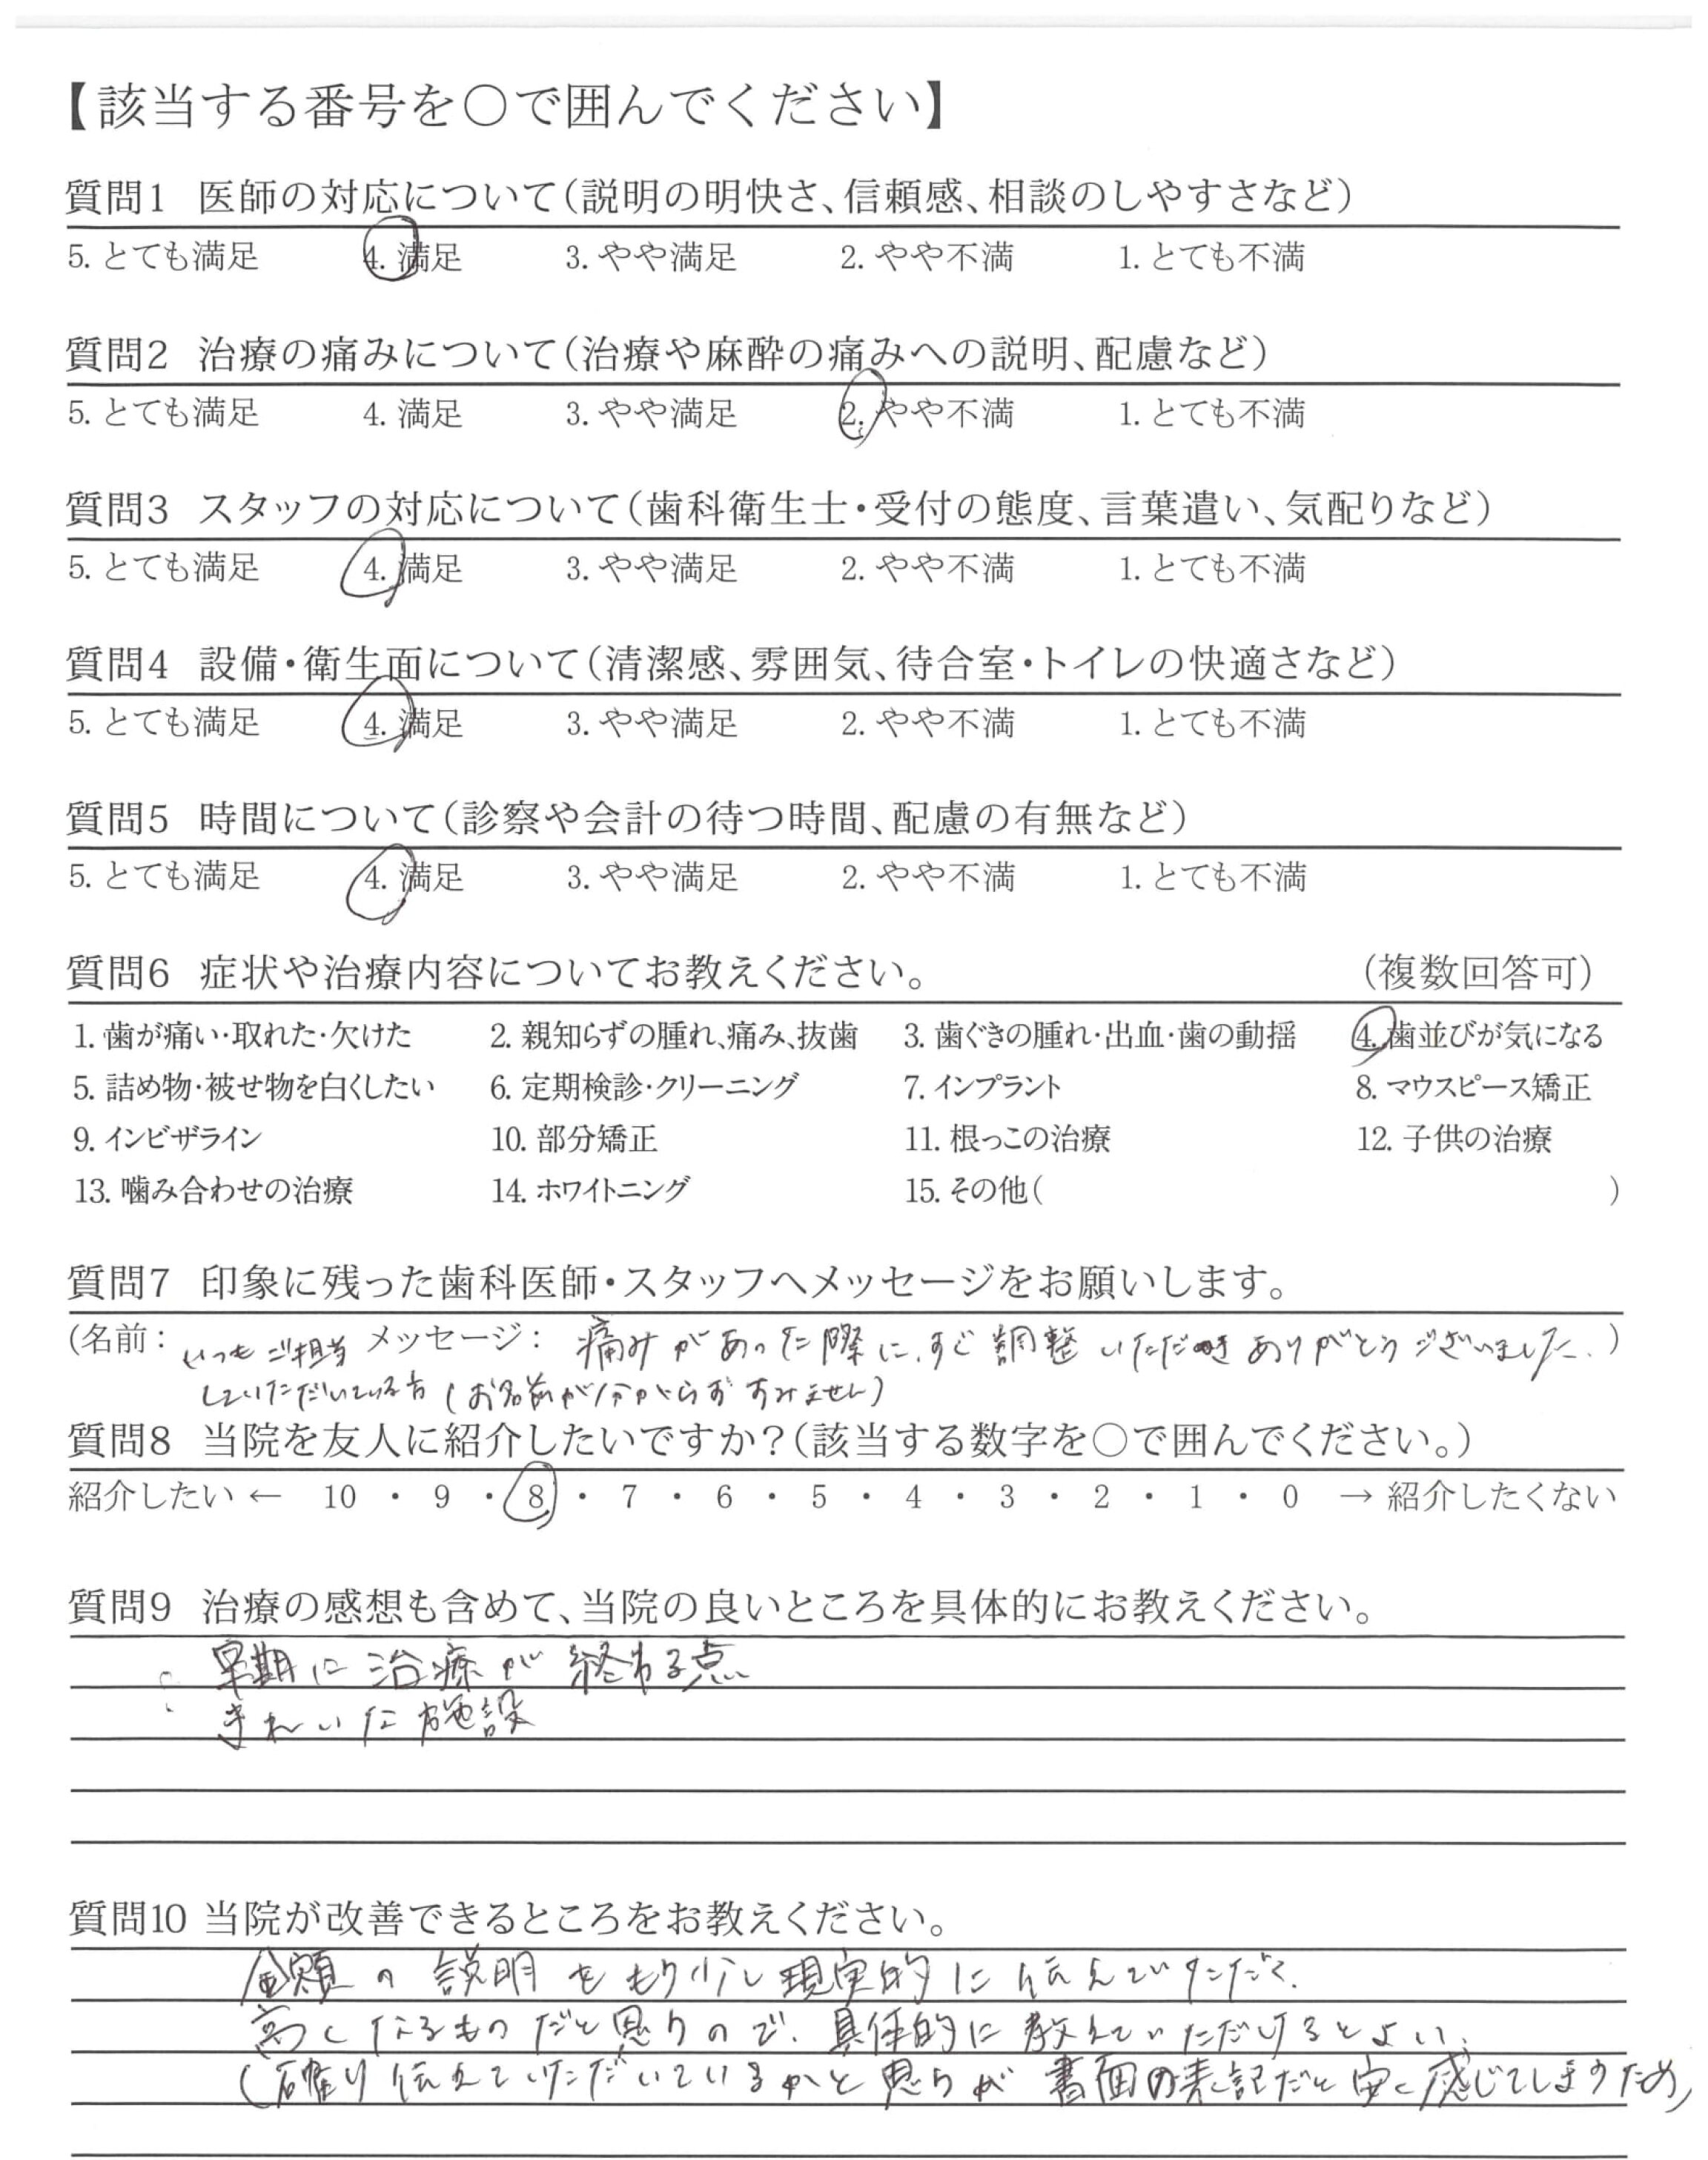 【該当する番号を○で囲んでください】
質問1 医師の対応について(説明の明快さ、信頼感、相談のしやすさなど)
5. とても満足 4. 満足 3. やや満足 2. やや不満 1. とても不満
質問2 治療の痛みについて(治療や麻酔の痛みへの説明、配慮など)
5. とても満足 4. 満足 3. やや満足 2. やや不満 1. とても不満
質問3 スタッフの対応について(歯科衛生士・受付の態度、言葉遣い、気配りなど)
5. とても満足 4. 満足 3. やや満足 2. やや不満 1. とても不満
質問4 設備・衛生面について(清潔感、雰囲気、待合室・トイレの快適さなど)
5. とても満足 4. 満足 3. やや満足 2. やや不満 1. とても不満
質問5 時間について(診察や会計の待つ時間、配慮の有無など)
5. とても満足 4. 満足 3. やや満足 2. やや不満 1. とても不満
質問6 症状や治療内容についてお教えください。 (複数回答可)
1. 歯が痛い・取れた・欠けた 2. 親知らずの腫れ、痛み、抜歯 3. 歯ぐきの腫れ・出血・歯の動揺 4. 歯並びが気になる
5. 詰め物・被せ物を白くしたい 6. 定期検診・クリーニング 7. インプラント 8. マウスピース矯正
9. インビザライン 10. 部分矯正 11. 根っこの治療 12. 子供の治療
13. 噛み合わせの治療 14. ホワイトニング 15. その他( )
質問7 印象に残った歯科医師・スタッフへメッセージをお願いします。
(名前: いつもご担当 メッセージ: 痛みがあった際に、すぐ調整いただきありがとうございました。)
していただいている方(お名前が分からずすみません)
質問8 当院を友人に紹介したいですか?(該当する数字を○で囲んでください。)
紹介したい ← 10 ・ 9 ・ 8 ・ 7 ・ 6 ・ 5 ・ 4 ・ 3 ・ 2 ・ 1 ・ 0 → 紹介したくない
質問9 治療の感想も含めて、当院の良いところを具体的にお教えください。
早期に治療が終わる点
きれいな施設
質問10 当院が改善できるところをお教えください。
金額の説明をもう少し現実的に伝えていただく。
高くなるものだと思うので、具体的に教えていただけるとよい。
(伝えていただいているかと思うが 書面の表記だと安く感じてしまうため)